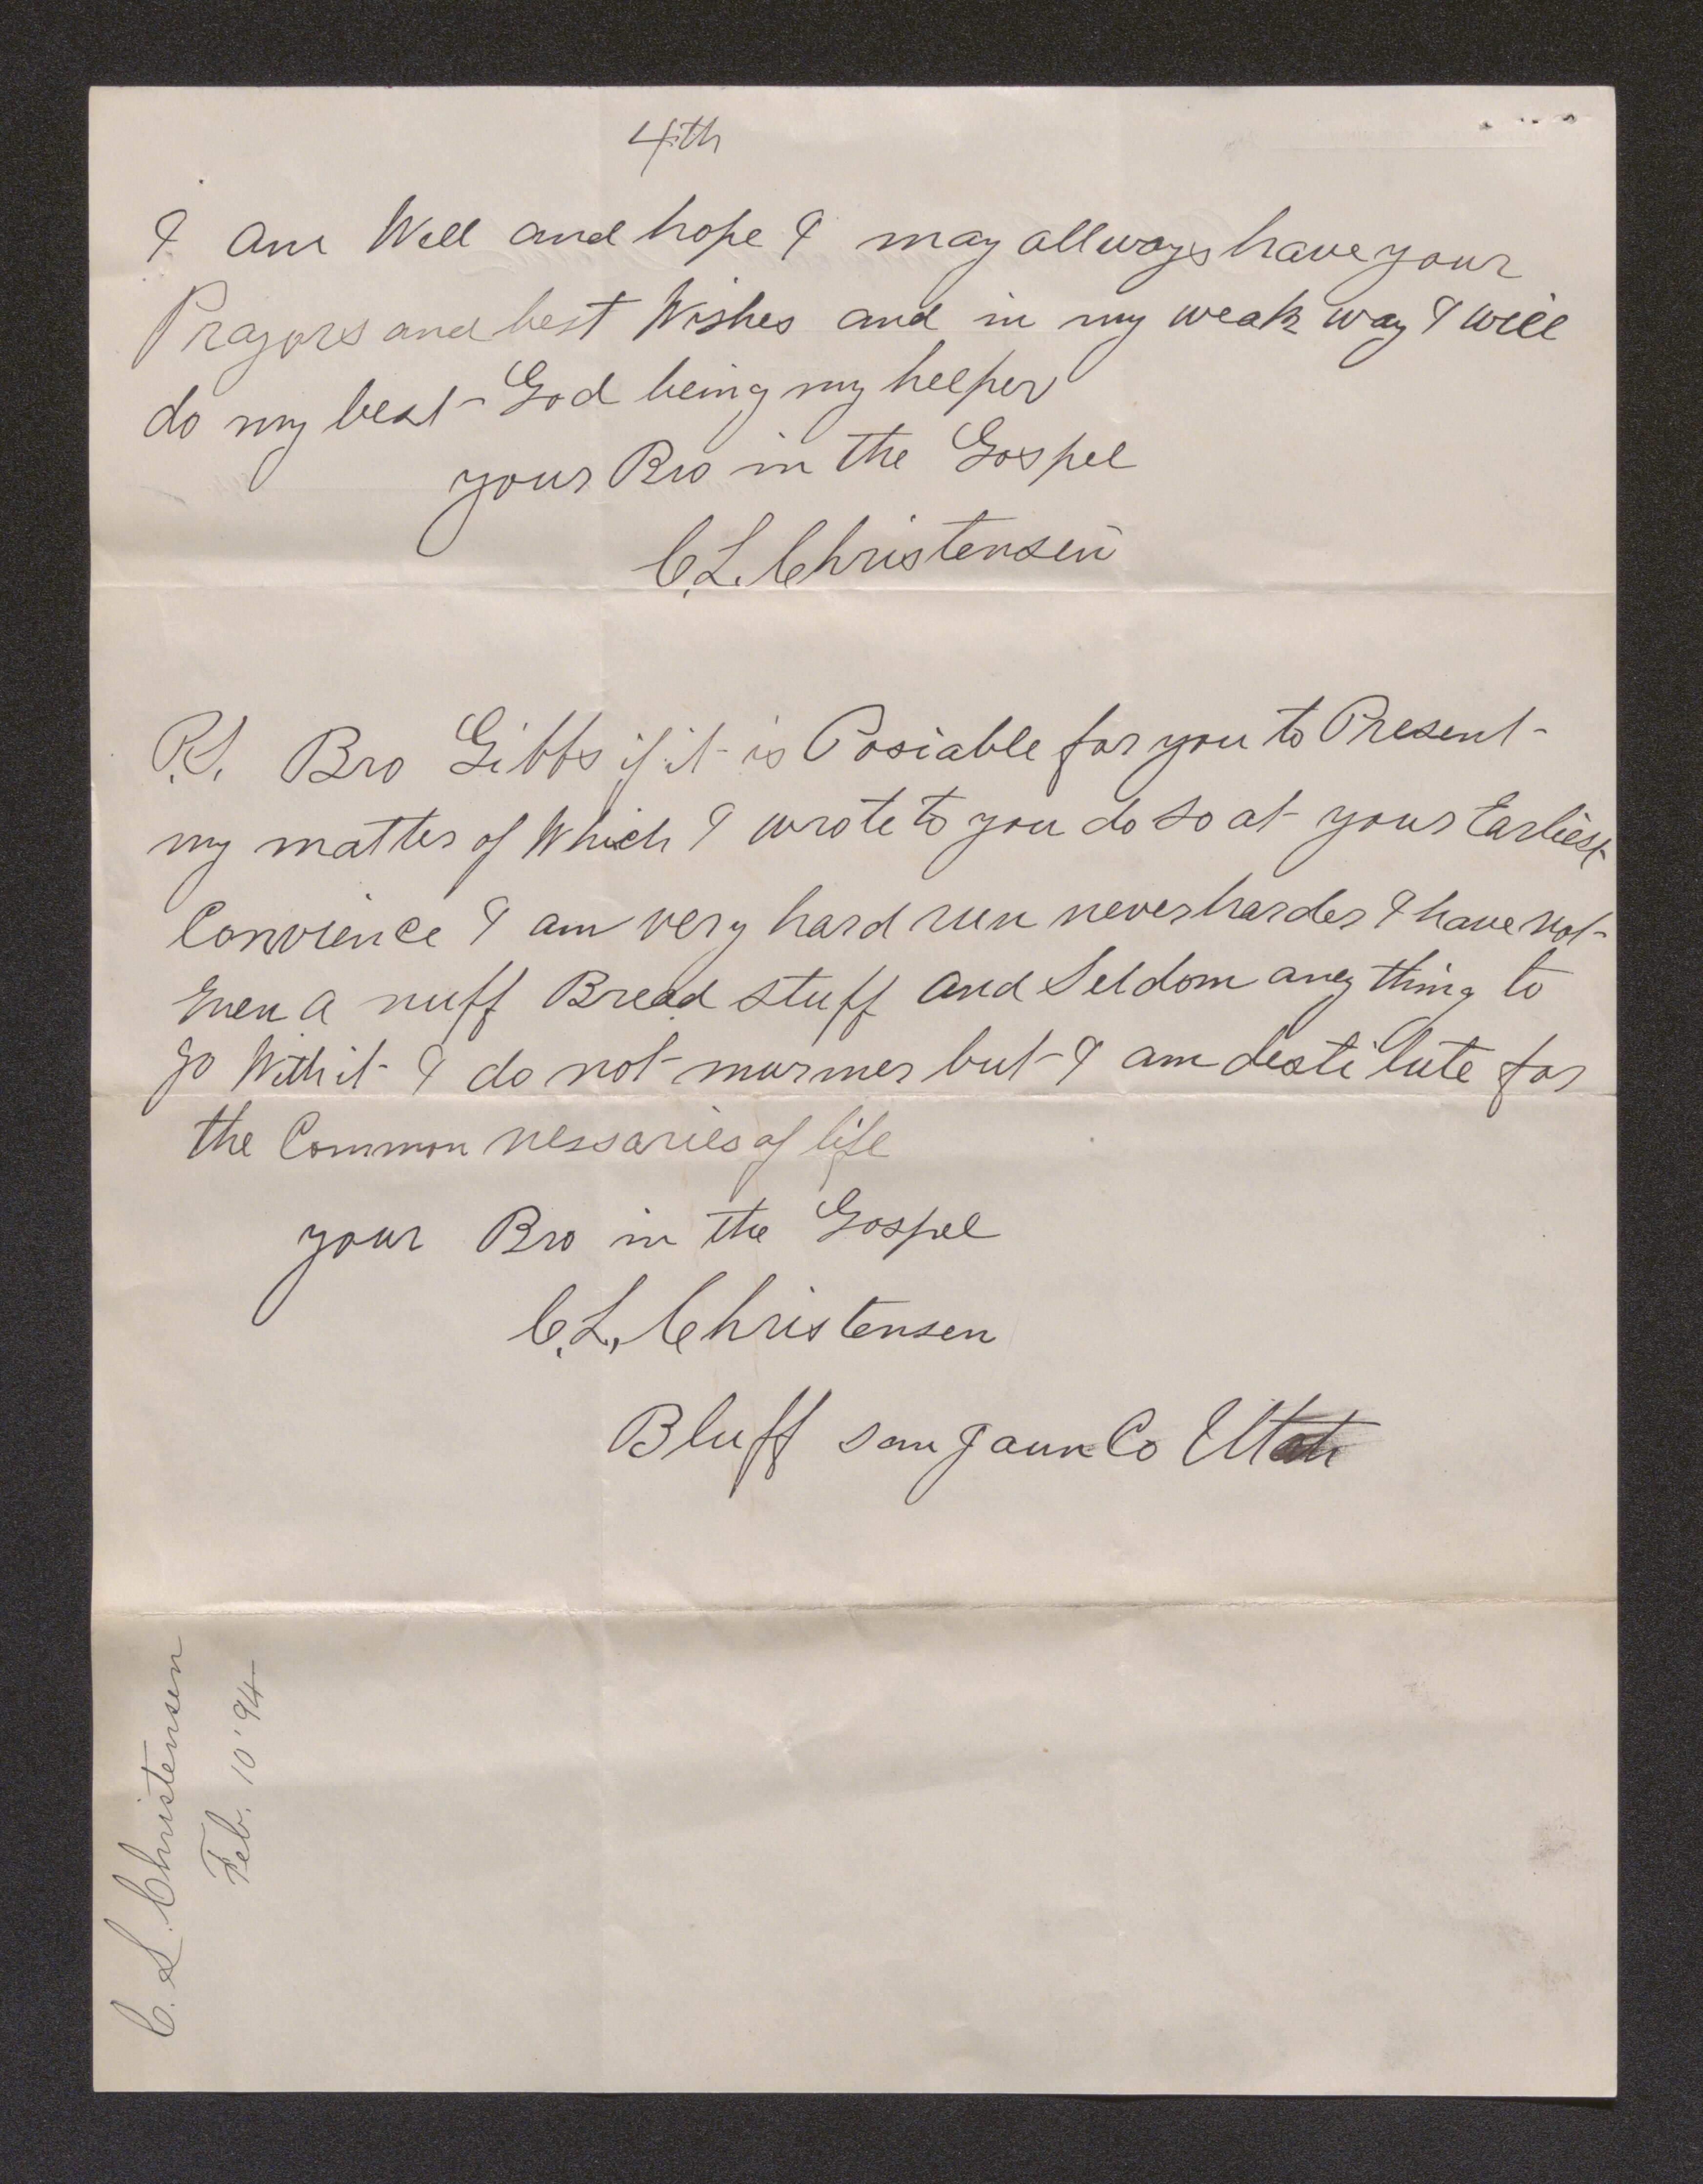 4th
I am Well and hope I may allways have your
Prayors and best Wishes and in my weak way I will
do my best God being my helper
your Bro in the Gospel
C.L. Christensen
P.S. Bro Gibbs if it is Posiable for you to Present
my matter of Which I wrote to you do so at your Earliest
Convience I am very hard run never harder I have not
Even a nuff Bread stuff and Seldom aney thing to
go With it I do not murmer but I am destitute for
the Common nessaries of life
your Bro in the Gospel
C.L. Christensen
Bluff san Jaun Co Utah
C. L. Christensen
Feb. 10 '94